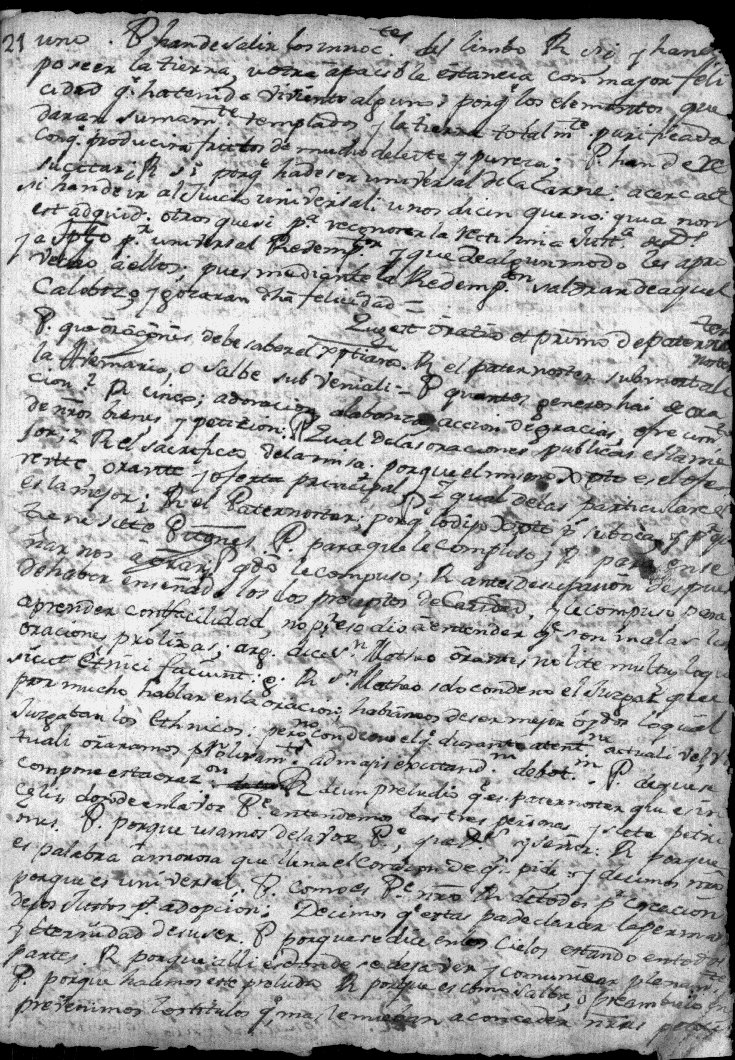 21 uno. P. han de salir los innoc.tes del limbo R si y han de
poseer la tierra, vostra apacible estancia con major feli
cidad q.e ha tenido viviente alguno; porq.e los elementos que
daran sumam.te templados y la tierra total m.te purificada
conq. producira frutos de mucho deleite y pureza. P. han de Re
sucitar; R si porq.e hade ser universal de la Carne: acerca de
si han de ir al Juicio universal: unos dicen que no: quia non
est adquid. otros que si p.a reconocer la rectissima Just.a de D.s
y a Xpto p.r universal Redemp.or y que de algun modo les apro
vecho a ellos; pues mediante la Redemp.on saldran de aquel
Calobozo y gozaran dha felicidad =
Quid est oratio et primo de pater noster
P. que oraçones debe saber el Xptiano. R el pater noster sub mortali
la Ave maria, o salbe sub veniali = P quantos generos hai de ora
cion? R cinco; adoracion alabanza accion de gracias, ofrecim.to
de nros bienes y peticion. P Qual de las oraciones publicas es la me
jor; R el sacrificio de la misa. porque el mismo Xpto es el ofe
rente, orante y oferta principal P qual de las particulares
es la mejor; R el Paternoster; porq.e lo dijo Xpto p.r su boca, y p.r q.e
tiene siete Petiones. P. para que le compuso; R para ense
ñar nos a orar P q.do le compuso; R antes de su pasion despues
de haber enseñado los dos preceptos de Caridad, y le compuso para
aprender con facilidad, no p.r eso dio a entender q.e son malas las
oraciones prolixas; arg. dice S.n Matheo orantes nolite multum loqui
sicut Ethnici faciunt: R S.n Matheo solo condeno el Juzgar que
por mucho hablar en la oracion; habiamos de ser mejor oydos lo qual
Juzgaban los Ethnicos: pero no condeno el q.e durante atent.ne actuali vel vir
tuali oraramos prolixam.te ad magis excitand.m debot.m P. de que se
compone esta oraz.on R de un preludio q.e es pater noster que es in
celis, donde en la voz P.e entendemos las tres personas, y siete peti
ones. P. porque usamos de la voz P.e y señor: R porque
es palabra amorosa que llena el corazon de q.n pide y decimos nro
porque es universal. P. como es P.e nro R de todos p.r creacion
de los Justos p.r adopcion; Decimos q.e estas para declarar la perma
y eternidad de su ser. P porque se dice en los Cielos estando en todas
partes. R porque alli es donde se deja ver y comunicar plenam.te
P. porque hacemos este preludio R porque es como salba, o preambulo
prevenimos los titulos q.e mas le muevan a conceder nras